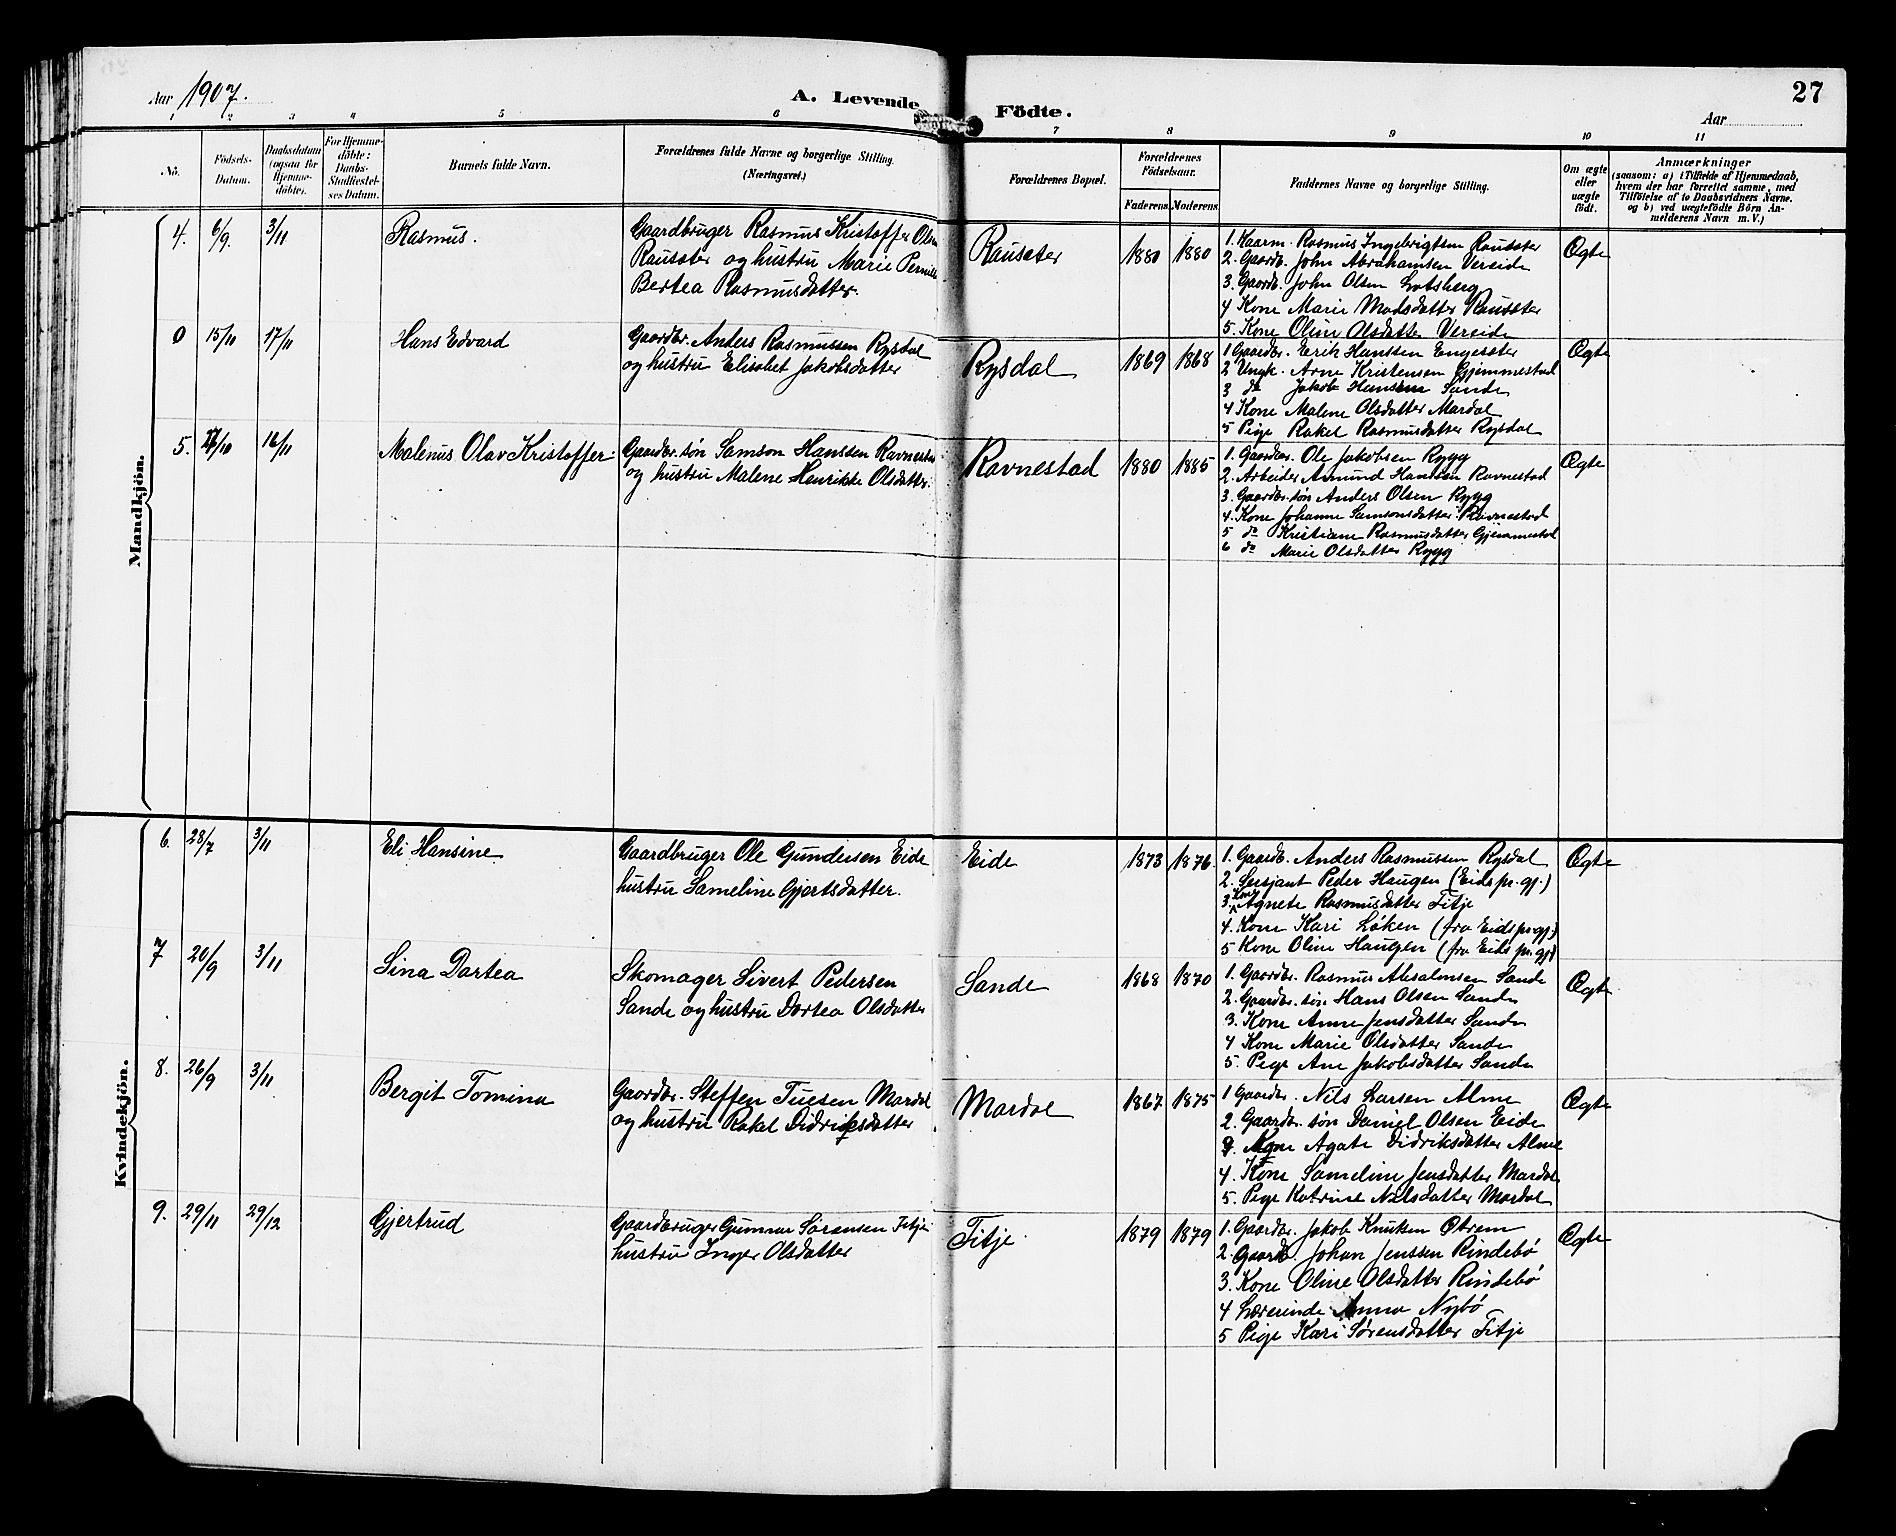 Aar 1907.
A. Levende Födte.
27
Aar
1 2 3 4 5 6 7 8 9 10 11
No.
Födsels-Datum.
Daabsdatum (ogsaa for Hjemme-döbte).
For Hjemme-döbte: Daabs-Stadfæstel-ses Datum.
Barnets fulde Navn.
Forældrenes fulde Navne og borgerlige Stilling. (Næringsvei.)
Forældrenes Bopæl.
Forældrenes Födselsaar.
Faderens. Moderens.
Faddernes Navne og borgerlige Stilling.
Om ægte eller uægte födt.
Anmærkninger
(saasom: a) i Tilfælde af Hjemmedaab,
hvem der har forrettet samme, med
Tilföielse af to Daabsvidners Navne.
og b) ved uægtefödte Börn An-
melderens Navn m. V.)
Mandkjön.
4. 6/9. 3/11 Rasmus.
Gaardbruger Rasmus Kristoffer Olsen
Rausæter og hustru Marie Pernille
Bertea Rasmusdatter.
Rausæter 1880 1880
1. Kaarm. Rasmus Ingebrigtsen Rausæter
2. Gaardb. John Abrahamsen Vereide
3. Gaardb. John Olsen Lotsberg
4 Kone Marie Madsdatter Rausæter
5. Kone Oline Olsdatter Vereide
Œgte
0 15/10 17/11 Hans Edvard
Gaardbr. Anders Rasmussen Rysdal
og hustru Elisabet Jakobsdatter
Rysdal 1869 1868
1 Gaardbr. Erik Hanssen Engesæter
2 Ungk. Arne Kristensen Gjemmestad
3 do Jakob Hansen Sande
4 Kone Malene Olsdatter Mardal
5 Pige Rakel Rasmusdatter Rysdal
Œgte
5. /10 16/11 Malenus Olav Kristoffer.
Gaardbr. søn Samson Hanssen Ravnestad
og hustru Malene Henrikke Olsdatter.
Ravnestad 1880 1885
1. Gaardbr. Ole Jakobsen Rygg
2. Arbeider Asmund Hanssen Ravnestad
3. Gaardbr. søn Anders Olsen Rygg
4. Kone Johanne Samsonsdatter Ravnestad
5 do Kristiane Rasmusdatter Gjemmestad
6 do Marie Olsdatter Rygg
Œgte
Kvindekjön.
6. 28/7 3/11 Eli Hansine
Gaardbruger Ole Gundersen Eide
hustru Sameline Gjertsdatter.
Eide 1873 1876
1. Gaardb. Anders Rasmussen Rysdal
2. Sersjant Peder Haugen (Eids pr. gj.)
3. Kone Agnete Rasmusdatter Fitje
4. Kone Kari Løken (fra Eids pr.gj.)
5 Kone Oline Haugen (fra Eids pr. gj.)
Œgte
7 20/9 3/11 Sina Dortea
Skomager Sivert Pedersen
Sande og hustru Dortea Olsdatter
Sande 1868 1870
1. Gaardbr. Rasmus Absalonsen Sande
2. Gaardbr. søn Hans Olsen Sande
3. Kone Anne Jensdatter Sande
4 Kone Marie Olsdatter Sande
5. Pige Ane Jakobsdatter Sande
Œgte
8. 26/9 3/11 Bergit Tomina
Gaardbr. Steffen Tuesen Mardal
og hustru Rakel Didriksdatter
Mardal 1867 1875
1 Gaardbr. Nils Larsen Alme
2. Gaardbr. søn Daniel Olsen Eide
3. Kone Agate Didriksdatter Alme
4. Kone Sameline Jensdatter Mardal
5. Pige Katrine Nilsdatter Mardal
Œgte
9. 29/11 29/12 Gjertrud
Gaardbruger Gunnar Sørensen Fitje
hustru Inger Olsdatter
Fitje. 1879 1879
1. Gaardbr. Jakob Knutsen Otrem
2. Gaardb Johan Jenssen Rindebö
3. Kone Oline Olsdatter Rindebö
4 Lærerinde Anna Nybö
5 Pige Kari Sørensdatter Fitje
Œgte